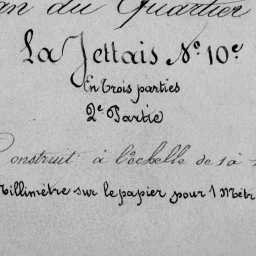 an du Quartier
La Jettais Nº 10e
En Trois parties
2e Partie
Construit à l'échelle de 1 à
Millimètre sur le papier pour 1 Mètr